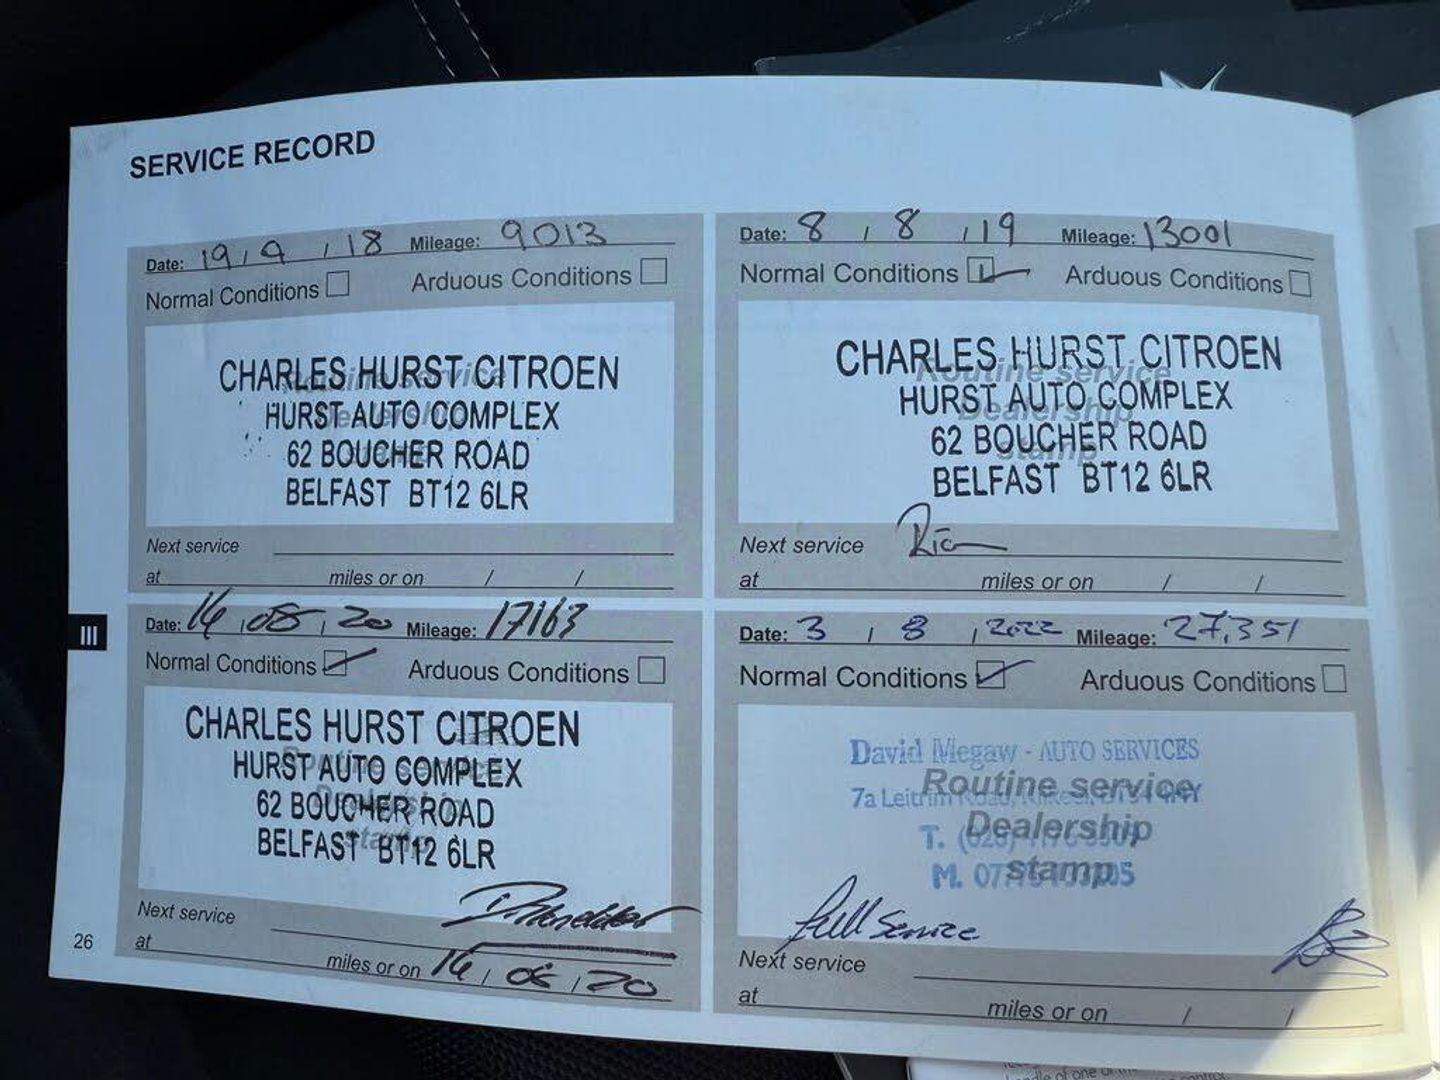 SERVICE RECORD
Date: 19 / 9 / 18 Mileage: 9013
Normal Conditions Arduous Conditions
Routine service
Dealership
stamp
CHARLES HURST CITROEN
HURST AUTO COMPLEX
62 BOUCHER ROAD
BELFAST BT12 6LR
Next service
at miles or on / /
Date: 8 / 8 / 19 Mileage: 13001
Normal Conditions Arduous Conditions
Routine service
Dealership
stamp
CHARLES HURST CITROEN
HURST AUTO COMPLEX
62 BOUCHER ROAD
BELFAST BT12 6LR
Next service
at miles or on / /
Date: 14 / 08 / 20 Mileage: 17163
Normal Conditions Arduous Conditions
Routine service
Dealership
stamp
CHARLES HURST CITROEN
HURST AUTO COMPLEX
62 BOUCHER ROAD
BELFAST BT12 6LR
Next service
at miles or on 14 / 08 / 20
Date: 3 / 8 / 2022 Mileage: 27,351
Normal Conditions Arduous Conditions
David Megaw - AUTO SERVICES
7a Leitrim
Routine service
Dealership
T. (028)
stamp
M.
full Service
Next service
at miles or on / /
III
26